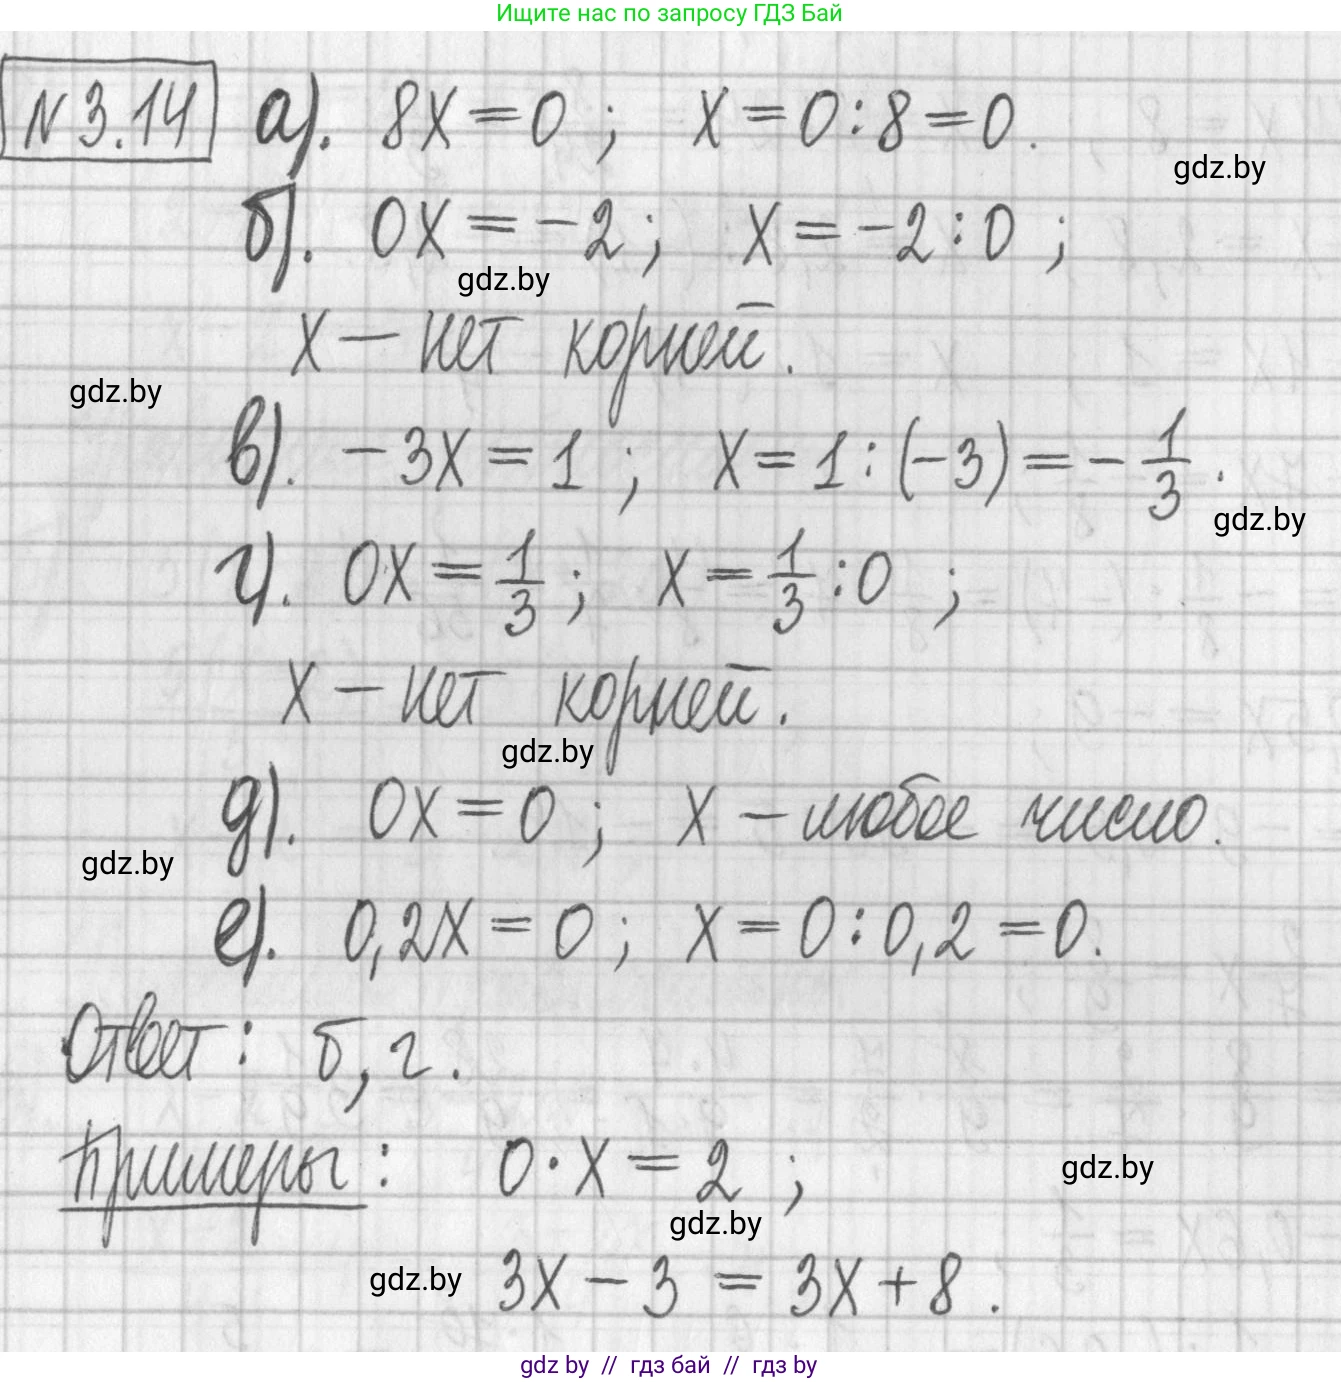 Ищите нас по запросу ГДЗ Бай
N 3.14 а). 8x = 0 ; x = 0 : 8 = 0.
gdz.by
б). 0x = -2 ; x = -2 : 0 ;
gdz.by
x — нет корней.
gdz.by
в). -3x = 1 ; x = 1 : (-3) = -1/3.
gdz.by
г). 0x = 1/3 ; x = 1/3 : 0 ;
x — нет корней.
gdz.by
д). 0x = 0 ; x — любое число.
gdz.by
е). 0,2x = 0 ; x = 0 : 0,2 = 0.
Ответ: б, г.
Примеры: 0 · x = 2 ;
gdz.by
gdz.by
gdz.by
3x - 3 = 3x + 8.
gdz by // гдз бай // гдз by